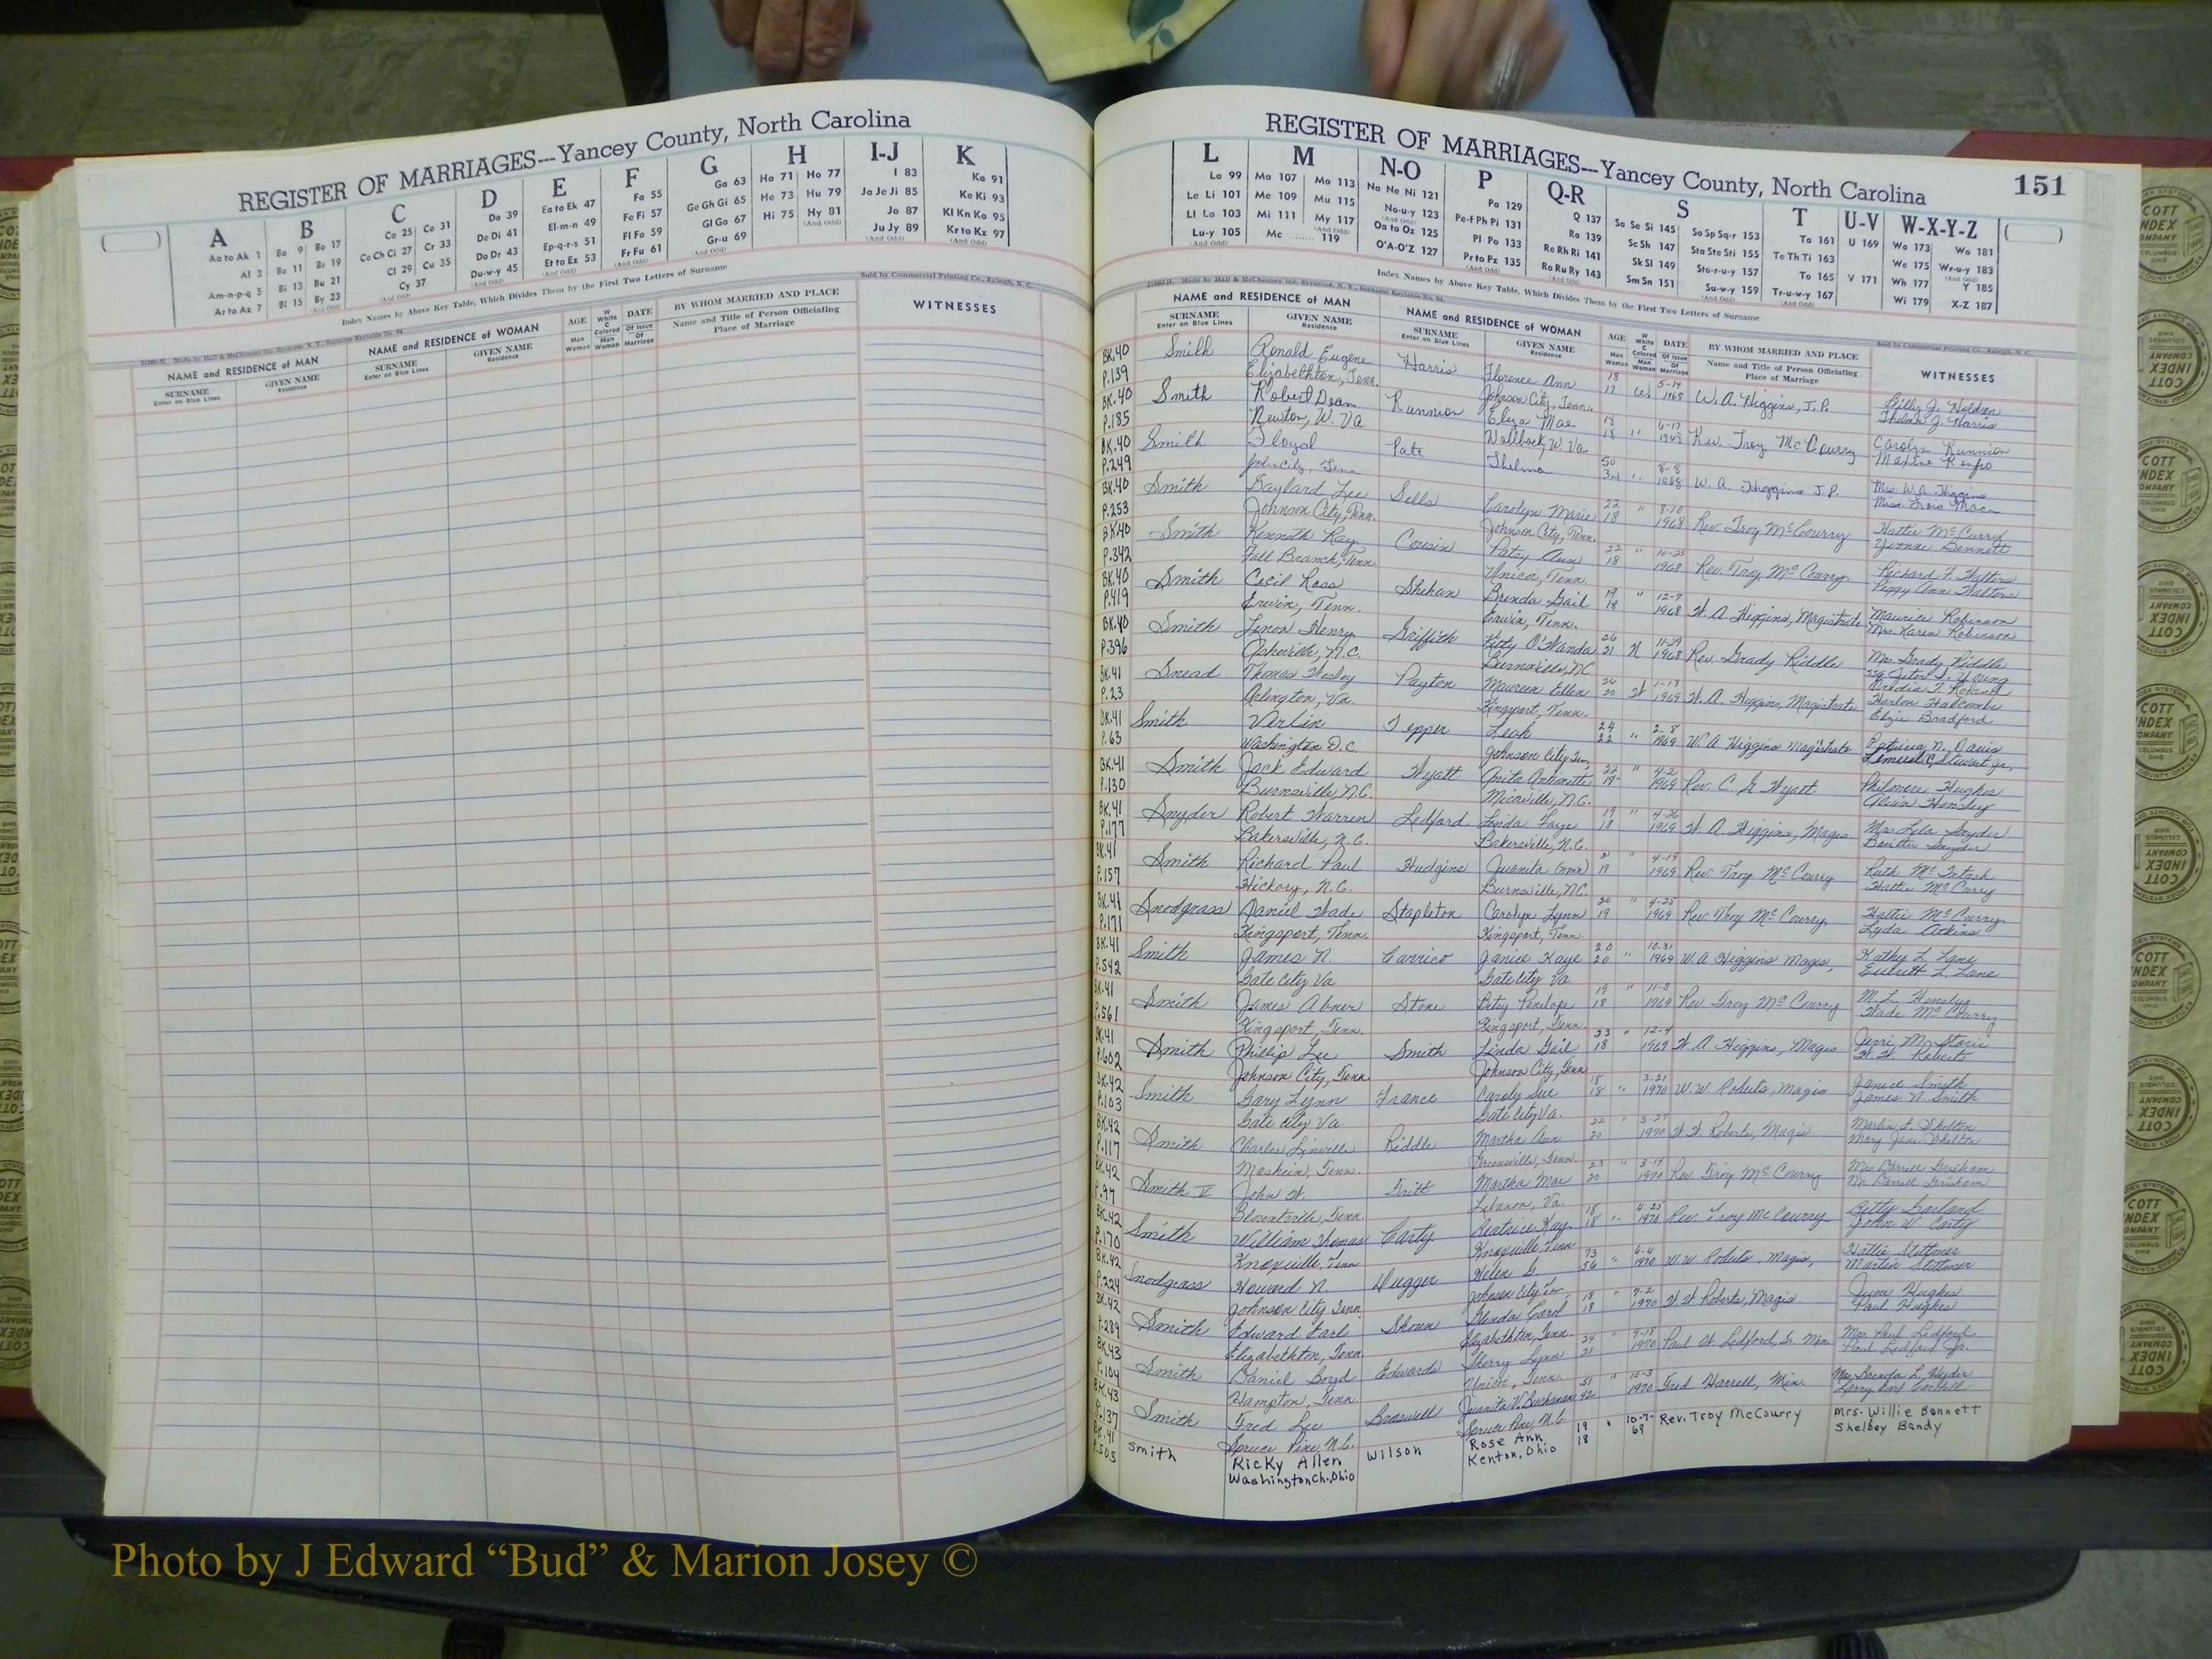 REGISTER OF MARRIAGES---Yancey County, North Carolina
A B C D E F G H I-J K
Aa to Ak 1 Ba 9 Bo 17 Ca 25 Co 31 Da 39 Ea to Ek 47 Fa 55 Ga 63 Ha 71 Ho 77 I 83 Ka 91
Al 3 Be 11 Br 19 Ce Ch Ci 27 Cr 33 De Di 41 El-m-n 49 Fe Fi 57 Ge Gh Gi 65 He 73 Hu 79 Ja Je Ji 85 Ke Ki 93
Am-n-p-q 5 Bi 13 Bu 21 Cl 29 Cu 35 Do Dr 43 Ep-q-r-s 51 Fl Fo 59 Gl Go 67 Hi 75 Hy 81 Jo 87 Kl Kn Ko 95
Ar to Az 7 Bl 15 By 23 Cy 37 Du-w-y 45 Et to Ez 53 Fr Fu 61 Gr-u 69 Ju Jy 89 Kr to Kz 97
Index Names by Above Key Table, Which Divides Them by the First Two Letters of Surname
Sold by Commercial Printing Co., Raleigh, N. C.
NAME and RESIDENCE of MAN
SURNAME
Enter on Blue Lines
GIVEN NAME
Residence
NAME and RESIDENCE of WOMAN
SURNAME
Enter on Blue Lines
GIVEN NAME
Residence
AGE
Man
Woman
White
C
Colored
Man
Woman
DATE
Of Issue
Of
Marriage
BY WHOM MARRIED AND PLACE
Name and Title of Person Officiating
Place of Marriage
WITNESSES
REGISTER OF MARRIAGES---Yancey County, North Carolina 151
L M N-O P Q-R S T U-V W-X-Y-Z
La 99 Ma 107 Mo 113 Na Ne Ni 121 Pa 129 Q 137 Sa Se Si 145 So Sp Sq-r 153 Ta 161 U 169 Wa 173 Wo 181
Le Li 101 Me 109 Mu 115 No-u-y 123 Pe-f Ph Pi 131 Ra 139 Sc Sh 147 Sta Ste Sti 155 Te Th Ti 163 We 175 Wr-u-y 183
Ll Lo 103 Mi 111 My 117 Oa to Oz 125 Pl Po 133 Re Rh Ri 141 Sk Sl 149 Sto-r-u-y 157 To 165 V 171 Wh 177 Y 185
Lu-y 105 Mc 119 O'A-O'Z 127 Pr to Pz 135 Ro Ru Ry 143 Sm Sn 151 Su-w-y 159 Tr-u-w-y 167 Wi 179 X-Z 187
Index Names by Above Key Table, Which Divides Them by the First Two Letters of Surname
NAME and RESIDENCE of MAN
SURNAME
Enter on Blue Lines
GIVEN NAME
Residence
NAME and RESIDENCE of WOMAN
SURNAME
Enter on Blue Lines
GIVEN NAME
Residence
AGE
Man
Woman
DATE
Of Issue
Of
Marriage
BY WHOM MARRIED AND PLACE
Name and Title of Person Officiating
Place of Marriage
WITNESSES
BK.40 Smith Ronald Eugene Harris Florence Ann 18 5-14 W. A. Higgins, J.P. Billy J. Holden
P.139 Elizabethton, Tenn. Johnson City, Tenn. 17 W. 1968 Thelma J. Harris
BK.40 Smith Robert Dean Runnion Eliza Mae 18 6-17 Rev. Troy McCourry Carolyn Runnion
P.185 Newton, W. Va 18 " 1968
BK.40 Smith Floyd Pate Thelma 50 8-8 W. A. Higgins J.P. Mrs. W.A. Higgins
P.249 1968
BK.40 Smith Gaylard Lee Sells Carolyn Marie 22 " 8-10 Rev. Troy McCourry Hattie McCurry
P.253 Johnson City, Tenn. Johnson City, Tenn. 18 1968 Yvonne Bennett
BK.40 Smith Kenneth Ray Cousin Patsy Ann 22 " 10-25 Rev. Troy McCourry Richard F. Walters
P.342 Fall Branch, Tenn. Unicoi, Tenn. 18 1968 Peggy Ann Walters
BK.40 Smith Cecil Ross Shehan Brenda Gail 19 " 12-7 W. A. Higgins, Magistrate Maurice Robinson
P.419 Erwin, Tenn. Erwin, Tenn. 18 1968 Mrs. Karen Robinson
BK.40 Smith Lenox Henry Griffith Kitty O'Wanda 26 N 11-29 Rev Grady Riddle Mrs Grady Riddle
P.396 Asheville, N.C. Burnsville, NC 21 1968
BK.41 Snead Thomas Wesley Payton Maureen Ellen 26 W 1-18 W. A. Higgins, Magistrate Harlon Halcombe
P.23 Arlington, Va. Kingsport, Tenn. 20 1969 Elzie Bradford
BK.41 Smith Verlin Tepper Leah 24 " 2-8 W. A Higgins Magistrate Patricia N. Davis
P.63 Washington D.C. Johnson City Tn, 22 1969 Lemuel C. Stewart Jr.
BK.41 Smith Jack Edward Wyatt Anita Antionette 22 " 4-2 Rev. C. G Wyatt Philmore Hughes
P.130 Burnsville, N.C. Micaville, N.C. 19 1969 Alicia Hensley
BK.41 Snyder Robert Warren Ledford Linda Faye 19 " 4-26 W. A. Higgins, Magis Mrs Lela Snyder
P.177 Bakersville, N.C. Bakersville, N.C. 18 1969 Snyder
BK.41 Smith Richard Paul Hudgins Juanita (nmn) 21 " 4-19 Rev. Troy McCurry Ruth McIntosh
P.157 Hickory, N.C. Burnsville, NC. 19 1969 Hattie McCurry
BK.41 Snodgrass Daniel Wade Stapleton Carolyn Lynn 20 " 4-25 Rev Troy McCourry Hattie McCurry
P.171 Kingsport, Tenn. Kingsport, Tenn. 19 1969 Lyda Atkins
BK.41 Smith James N. Carrico Janice Kaye 20 " 10.31 W. A Higgins Magis, Kathy L Lane
P.542 Gate City Va Gate City Va 20 1969 L. Lane
BK.41 Smith James Abner Stone Betsy Penelope 19 " 11-8 Rev Troy McCourry M. L. Hensley
P.561 Kingsport, Tenn. Kingsport, Tenn. 18 1969 Wade McCourry
BK.41 Smith Phillip Lee Smith Linda Gail 23 " 12-4 W. A Higgins, Magis Jerri M. Storie
P.602 Johnson City, Tenn. Johnson City, Tenn 18 1969 W. W. Roberts
BK.42 Smith Gary Lynn France Caroly Sue 18 " 3-21 W. W. Roberts, Magis Janice Smith
P.103 Gate City Va. Gate City Va. 18 1970 James N Smith
BK.42 Smith Charles Linville Riddle Martha Ann 22 " 3-27 W. W. Roberts, Magis Shelton
P.117 Tenn. Greeneville, Tenn. 20 1970 Mary Jane Shelton
BK.42 Smith V John W. Tritt Martha Mae 23 " 3-14 Rev. Troy McCourry
P.97 Blountville, Tenn. Lebanon, Va. 20 1970
BK.42 Smith William Thomas Carty Beatrice Kay 18 " 4-25 Rev. Troy McCourry Betty Garland
P.170 Knoxville, Tenn Knoxville, Tenn 18 1970 John W. Carty
BK.42 Snodgrass Howard N. Dugger Helen G. 73 " 6-4 W W Roberts, Magis,
P.224 Johnson City Tenn Johnson City Tn 56 1970
BK.42 Smith Edward Earl Shoun Glenda Carol 18 " 7-2 W W Roberts, Magis. June Hughes
P.289 Elizabethton, Tenn Elizabethton, Tenn. 18 1970 Paul Hughes
BK.43 Smith Daniel Boyd Edwards Sherry Lynn 24 " 9-18 Paul W Ledford, Sr. Min Mrs Paul Ledford
P.104 Hampton, Tenn. Unicoi, Tenn. 21 1970 Paul Ledford Jr.
BK.43 Smith Fred Lee Braswell Juanita V. Buchanan 51 " 10-3 Fred Harrell, Min. Mrs Brenda L. Hyder
P.137 Spruce Pine, N.C. Spruce Pine, N.C. 42 1970
BK.41 Smith Ricky Allen Wilson Rose Ann 19 " 10-7- Rev. Troy McCourry Mrs. Willie Bennett
P.505 Washington Ch., Ohio Kenton, Ohio 18 69 Shelbey Bandy
COTT
INDEX
COMPANY
COLUMBUS
OHIO
Photo by J Edward “Bud” & Marion Josey ©